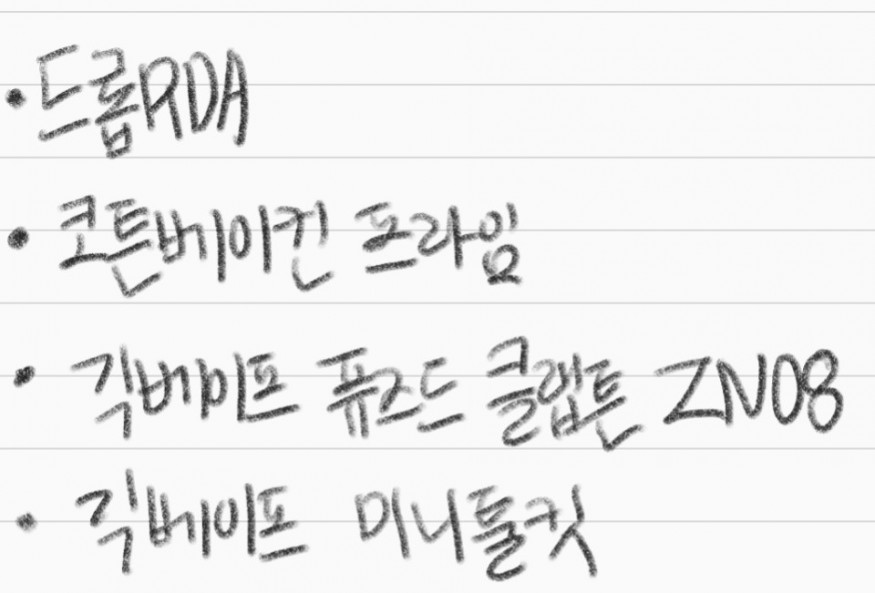 • 드롭RDA
• 코튼베이컨 프라임
• 긱베이프 퓨즈드 클랩튼 ZN08
• 긱베이프 미니툴킷